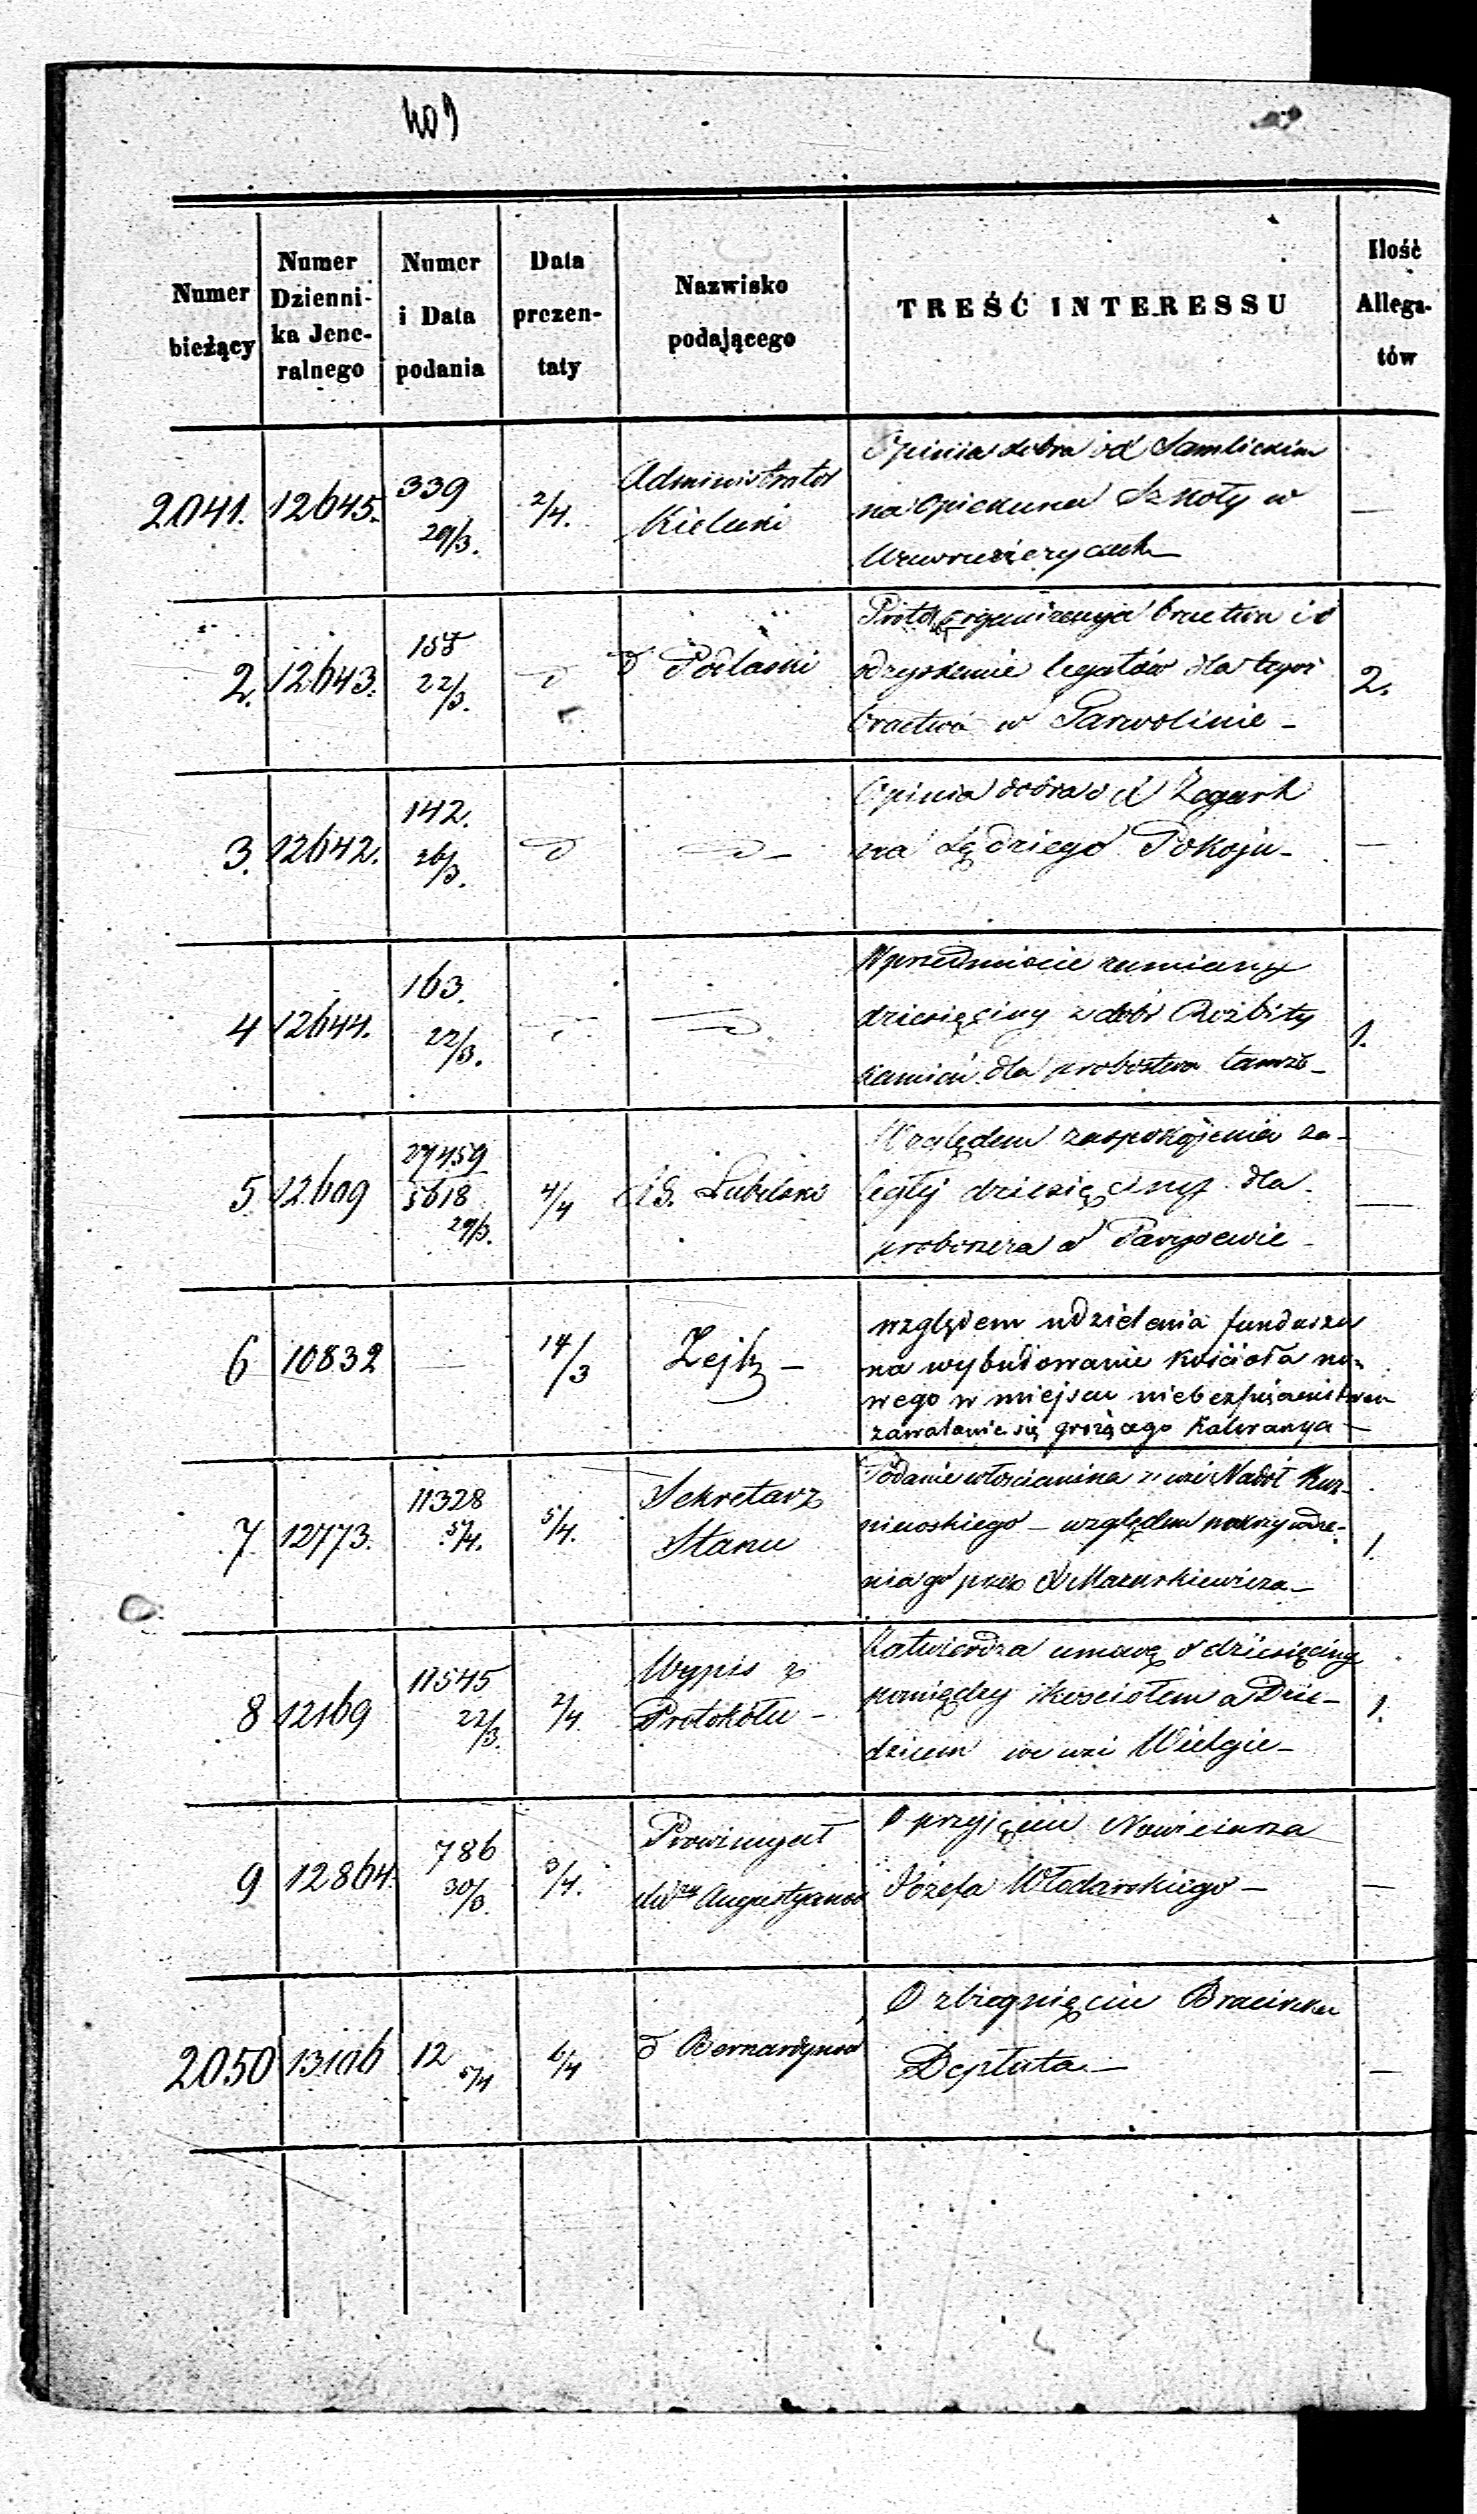 409
Numer bieżący | Numer Dzienni-ka Jene-ralnego | Numer i Data podania | Data prezen-taty | Nazwisko podającego | TREŚĆ INTERESSU | Ilość Allega-tów
2041. 12645. 339 29/3. 2/4. Administrator Kielecki
Opinia dobra od
na Opiekuna Szkoły w
—
2. 12643. 22/3. d d Podlaski
organizacya bractwa i o
odzyskanie legatów dla tegoż
bractwa w Parwolinie –
2.
3. 12642. 142. 26/3. d — d —
Opinia dobra
na Sędziego Pokoju –
—
4 12644. 163. 22/3. d d
W przedmiocie zamiany
dziesięciny z dóbr Rozbity
Kamień dla probostwa tamże –
1.
5 12609 27459 5618 29/3. 4/4 Lubelski
Względem zaspokojenia za-
ległej dziesięciny dla
proboszcza w Parysewie –
—
6 10832 — 14/3 Zejtz –
względem udzielenia funduszu
na wybudowanie kościoła no-
wego w miejscu niebezpieczeństwem
zawalenia się grożącego Kalwarya –
7 12773. 11328 5/4. 5/4. Sekretarz Stanu
Podanie włościanina z wsi Nadół
– względem pokrzywdze-
nia go przez Mazurkiewicza –
1.
8 12169 11545 22/3. 2/4. Wypis z Protokółu –
Zatwierdza umowę o dziesięciny
pomiędzy kościołem a Dzie-
dzicem we wsi Wielgie –
1.
9 12864. 786 30/3. 3/4. Prowincyał Augustyanów
O przyjęciu Nowiciusza
Józefa Włodarskiego –
—
2050 13106 12 5/4 6/4 d Bernardynów
O zbiegnięciu Braciszka
Deptuta –
—